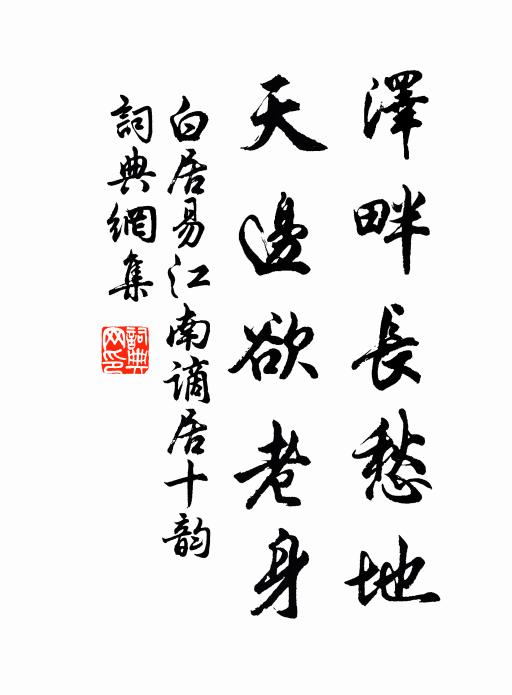 澤畔長愁地
天邊欲老身
白居易江南謫居十韵
詞典網集
詞典網印